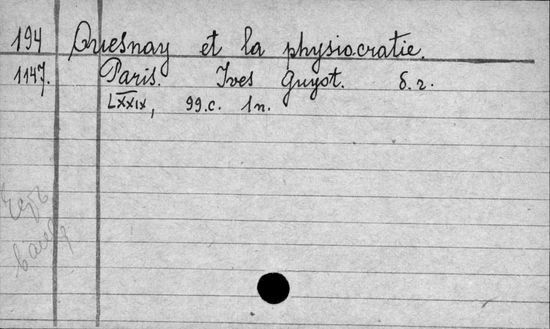 194 Quesnay et la physiocratie.
1147. Paris. Ives Guyot. б. г.
LXXIX, 99.c. 1n.